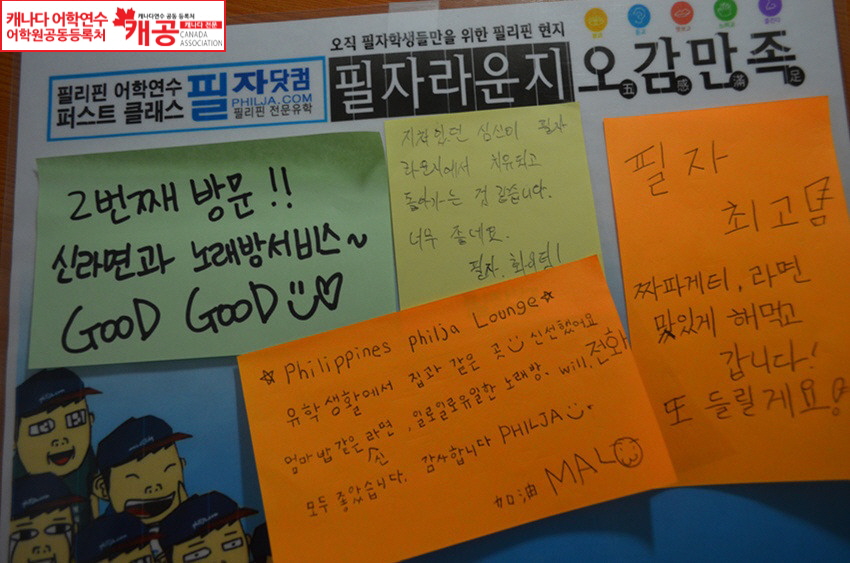 캐나다어학연수
어학원공동등록처
캐나다연수 공동 등록처
캐공
캐나다 전문
CANADA
ASSOCIATION
오직 필자학생들만을 위한 필리핀 현지
필리핀 어학연수
퍼스트 클래스
필자닷컴
PHILJA.COM
필리핀 전문유학
필자라운지
오감만족
五 感 滿 足
2번째 방문 !!
신라면과 노래방서비스~
GOOD GOOD
지쳐있던 심신이 필자
라운지에서 치유되고
돌아가는 것 같습니다.
너무 좋네요.
필자. 화이팅!
필자
최고봄
짜파게티, 라면
맛있게 해먹고
갑니다!
또 들릴게요
Philippines philja Lounge
유학생활에서 집과 같은 곳 신선했어요
엄마 밥같은 신라면, 일로일로유일한 노래방, will. 전화
모두 좋았습니다. 감사합니다 PHILJA
加油 MALO
philja.com